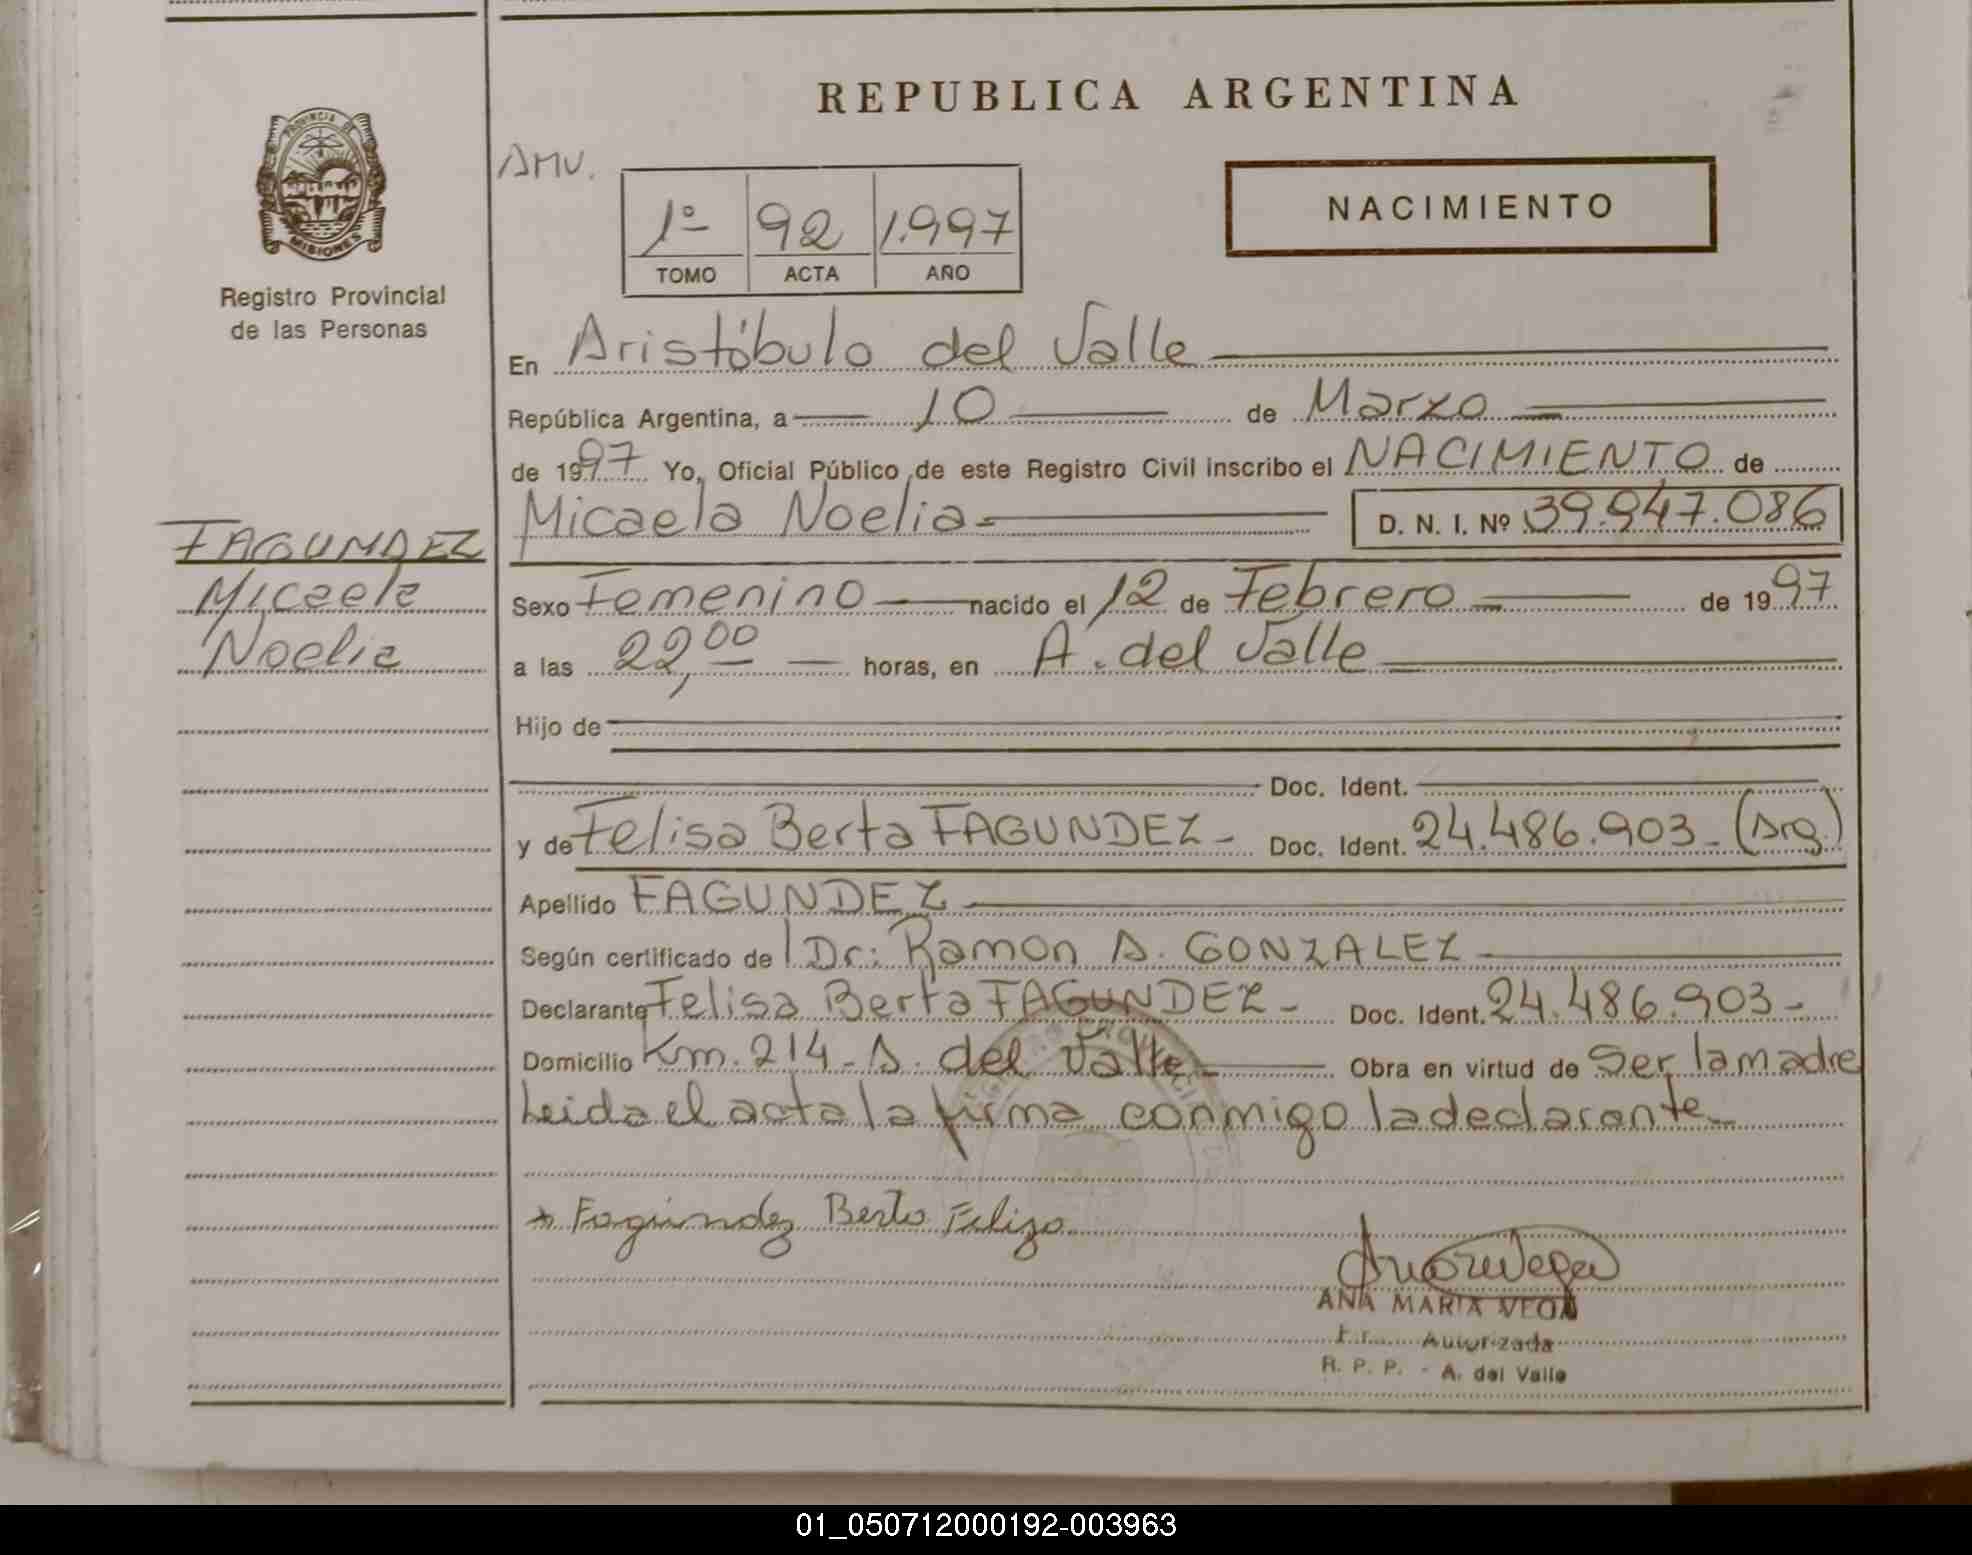 REPUBLICA ARGENTINA
PROVINCIA DE
MISIONES
Registro Provincial
de las Personas
AMV.
1º 92 1.997
TOMO ACTA AÑO
NACIMIENTO
En Aristóbulo del Valle
República Argentina, a 10 de Marzo
de 1997 Yo, Oficial Público de este Registro Civil inscribo el NACIMIENTO de
Micaela Noelia D. N. I. Nº 39.947.086
FAGUNDEZ
Micaela
Noelia
Sexo Femenino nacido el 12 de Febrero de 1997
a las 22,00 horas, en A. del Valle
Hijo de
Doc. Ident.
y de Felisa Berta FAGUNDEZ - Doc. Ident. 24.486.903 - (Arg.)
Apellido FAGUNDEZ
Según certificado de Dr: Ramon A. GONZALEZ
Declarante Felisa Berta FAGUNDEZ - Doc. Ident. 24.486.903 -
Domicilio Km. 214 - A. del Valle Obra en virtud de Ser la madre
Leida el acta la firma conmigo la declarante
Fagundez Berta Feliza
ANA MARIA VEGA
Autorizada
R. P. P. - A. del Valle
01_050712000192-003963